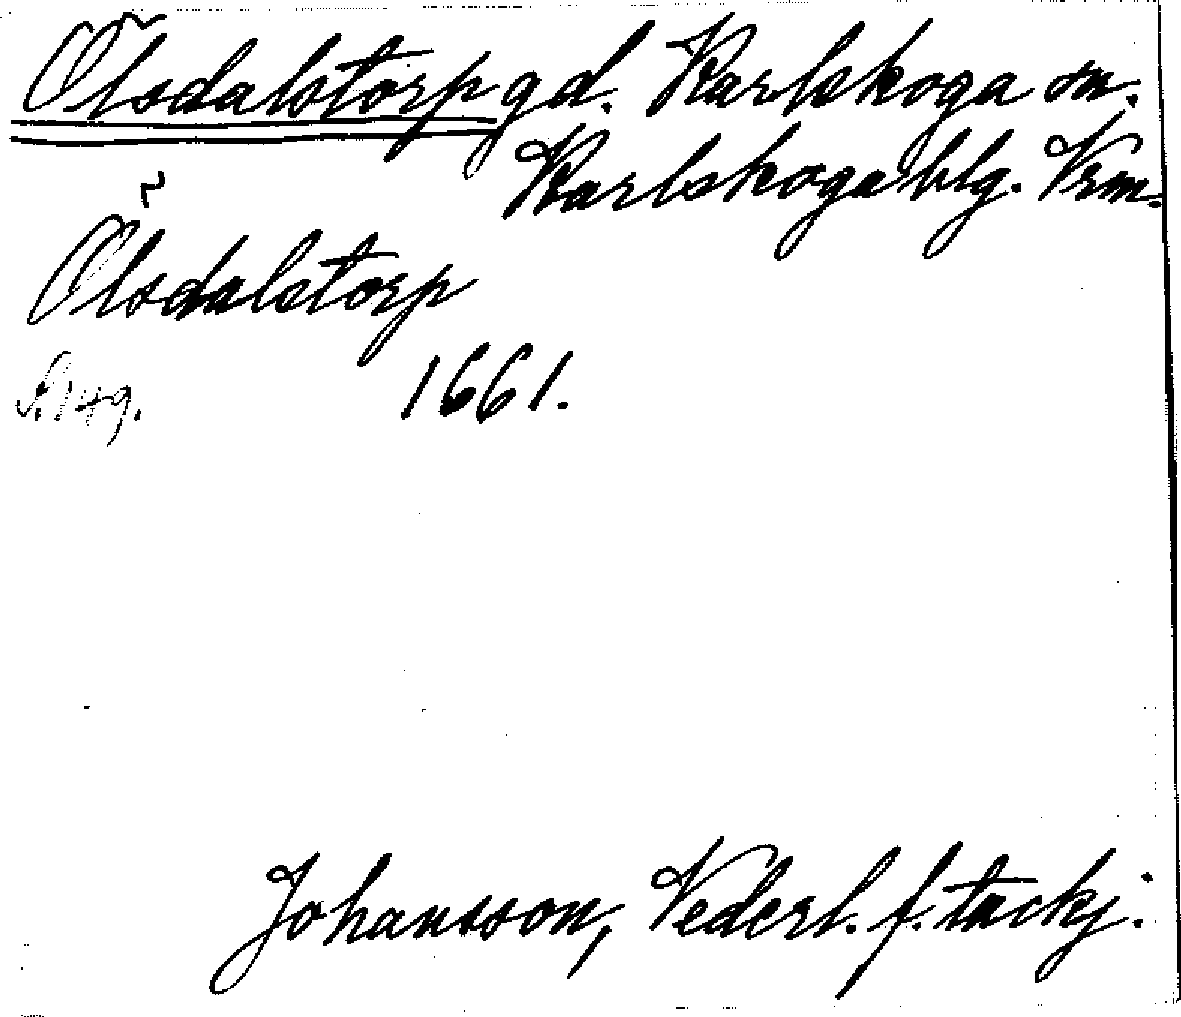 Ölsdalstorp gd. Karlskoga sn.
Karlskoga blg. Vrm.
Ölsdalstorp
S. 149. 1661.
Johansson, Vederl. f. tackj.